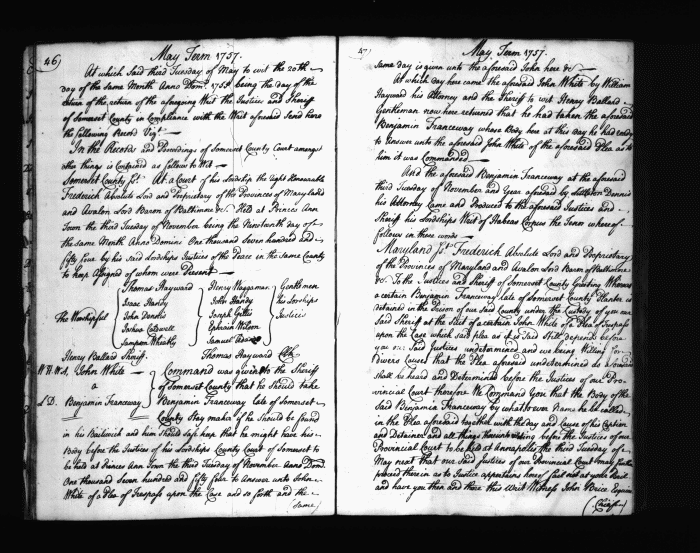 46)
May Term 1757.
At which Said third Tuesday of May to wit the 20th
day of the same Month Anno Dom: 175 being the day of the
Return of the return of the aforegoing Writ the Justices and Sheriff
of Somerset County in Compliance with the Writ aforesaid Send here
the following Record Vizt
In the Records and Proceedings of Somerset County Court amongst
other things is Contained as follows to Wit
Somerset County Sst. At a Court of his Lordship the Right Honourable
Frederick Absolute Lord and Proprietary of the Provinces of Maryland
and Avalon Lord Baron of Baltimore &c. Held at Princes Ann
Town the third Tuesday of November being the Nineteenth day of
the same Month Anno Domini One thousand Seven hundred and
fifty five by his said Lordships Justices of the Peace in the Same County
to keep Assigned of whom were Present
The Worshipful
Thomas Hayward
Isaac Handy
John Dennis
Joshua Caldwell
Sampson Wheatly
Henry Waggaman
John Handy
Joseph Gillis
Ephraim Wilson
Samuel
Gentlemen
his Lordships
Justices
Henry Ballard Sheriff. Thomas Hayward Clk
W.H. John White
a
L.D. Benjamin Franceway
Command was given to the Sheriff
of Somerset County that he Should take
Benjamin Franceway late of Somerset
County Stay maker if he Should be found
in his Bailiwick and him Should safe keep that he might have his
Body before the Justices of his Lordships County Court of Somerset to
be held at Princes Ann Town the third Tuesday of November Anno Dom:
One thousand Seven hundred and fifty five to Answer unto John
White of a Plea of Trespass upon the Case and so forth and the
same)
47
May Term 1757.
same day is given unto the aforesaid John here &c
At which day here came the aforesaid John White by William
Hayward his Attorney and the Sheriff to wit Henry Ballard
Gentleman now here returned that he had taken the aforesaid
Benjamin Franceway whose Body here at this day he had ready
to Answer unto the aforesaid John White of the aforesaid Plea as to
him it was Commanded
And the aforesaid Benjamin Franceway at the aforesaid
third Tuesday of November and Year aforesaid by Littleton Dennis
his Attorney Came and Produced to the aforesaid Justices and
Sheriff his Lordships Writ of Habeas Corpus the Tenor whereof
follows in these words
Maryland Sst. Frederick Absolute Lord and Proprietary
of the Provinces of Maryland and Avalon Lord Baron of Baltimore
&c. To the Justices and Sheriff of Somerset County Greeting Whereas
a certain Benjamin Franceway late of Somerset County Planter is
detained in the Prison of our Said County under the Custody of you our
Said Sheriff at the Suit of a certain John White of a Plea of Trespass
upon the Case which said plea as is Said Still depends before
you our Said Justices undetermined and we being Willing for
Divers Causes that the Plea aforesaid undetermined as
shall be heard and Determined before the Justices of our Pro-
vincial Court therefore We Command you that the Body of the
Said Benjamin Franceway by whatsoever Name he be called
in the Plea aforesaid together with the day and Cause of his Caption
and Detainer and all things before the Justices of our
Provincial Court to be held at Annapolis the third Tuesday of
May next that our Said Justices of our Provincial Court may
proceed therein as to Justice appertains hereof fail not at your Peril
and have you then and there this Writ Witness John Brice Esquire
(Chief